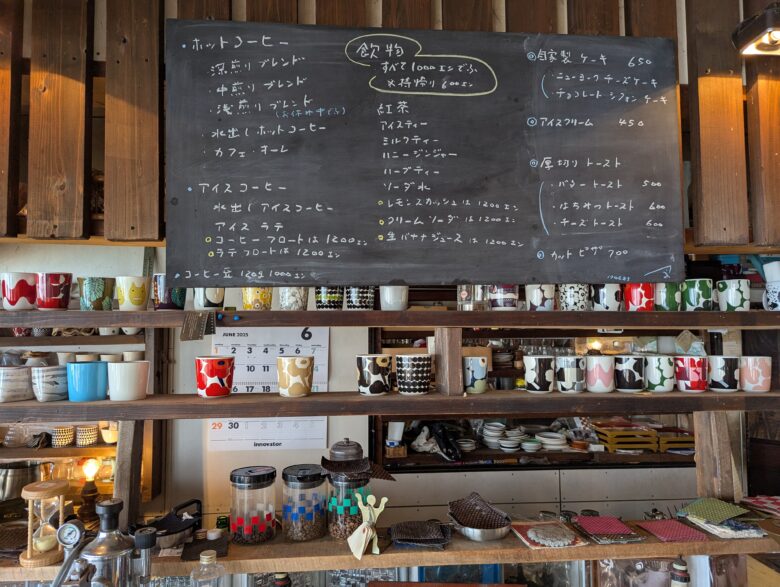 ホットコーヒー
深煎りブレンド
中煎りブレンド
浅煎りブレンド
(お休み中です)
水出しホットコーヒー
カフェ・オーレ
アイスコーヒー
水出しアイスコーヒー
アイスラテ
コーヒーフロートは1200エン
ラテフロートは1200エン
コーヒー豆 120g 1000エン
飲物
すべて1000エンです
※持帰り600エン
紅茶
アイスティー
ミルクティー
ハニージンジャー
ハーブティー
ソーダ水
レモンスカッシュは1200エン
クリームソーダは1200エン
生バナナジュースは1200エン
自家製ケーキ 650
ニューヨークチーズケーキ
チョコレートシフォンケーキ
アイスクリーム 450
厚切りトースト
・バタートースト 500
・はちみつトースト 600
・チーズトースト 600
カットピザ 700
JUNE 2025 6
29 30
innovator